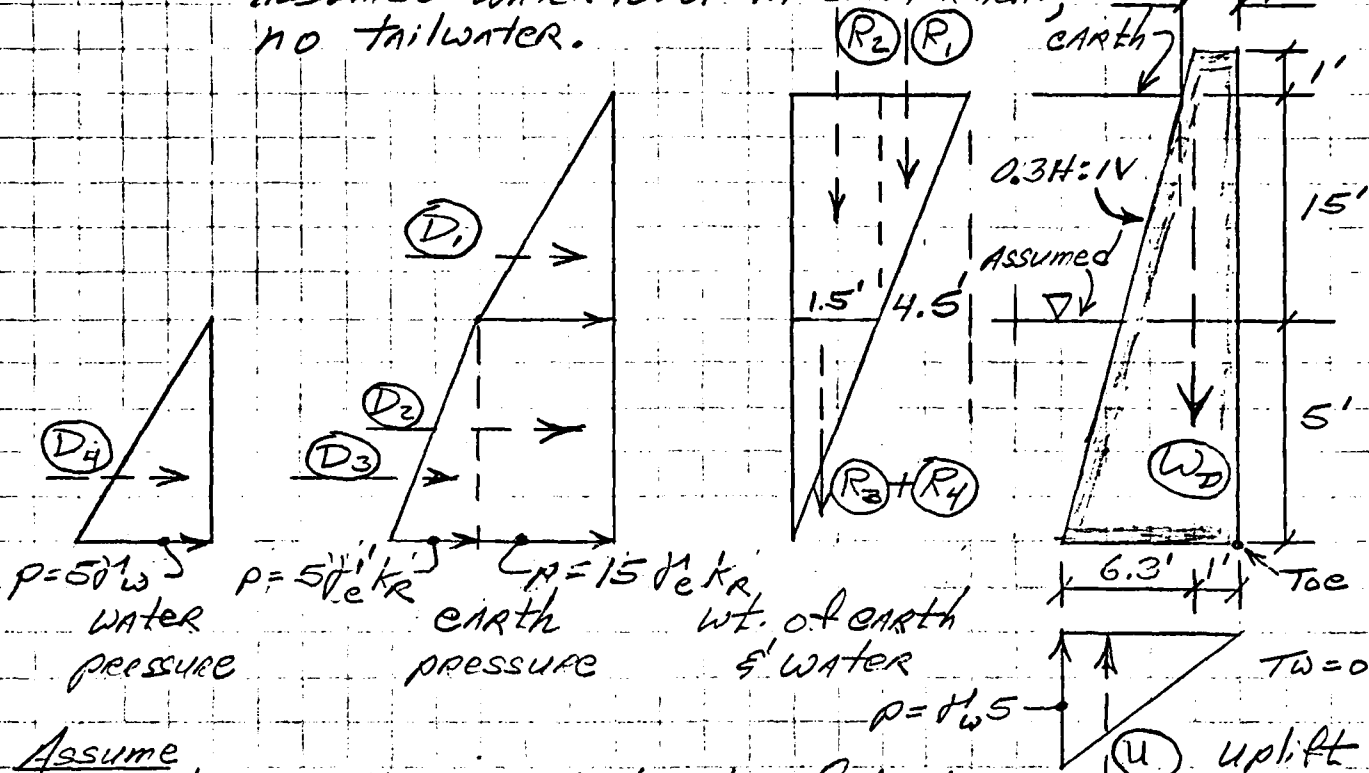 no tailwater.
R2 R1
earth
1'
D1
0.3H:1V
15'
Assumed
1.5' 4.5'
D2
5'
D4
D3
R3 + R4
WD
p=5γw
p=5γe'kR
p=15γekR
6.3' 1'
Toe
water
pressure
earth
pressure
wt. of earth
& water
TW=0
p=γw5
U uplift
Assume